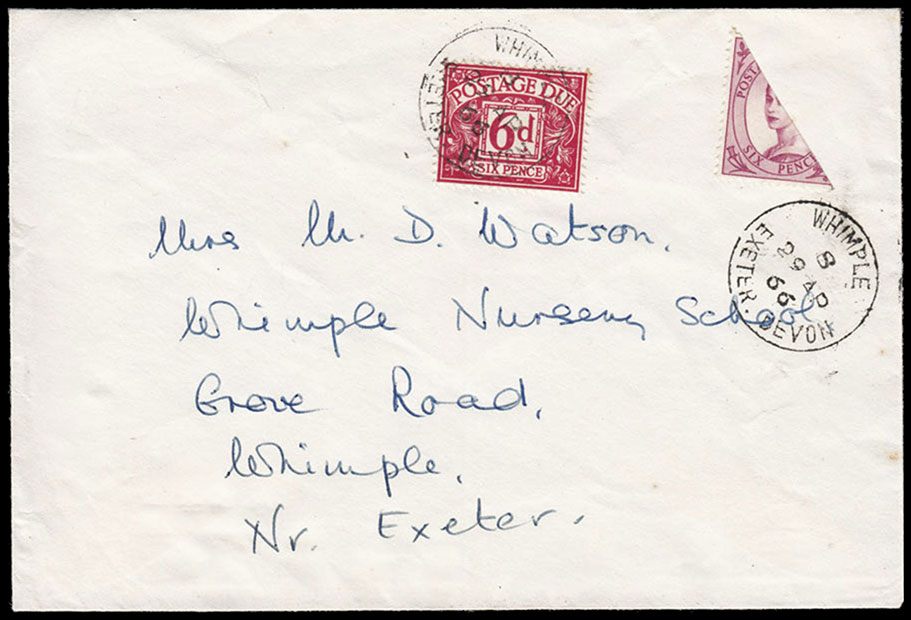 WHIMPLE
EXETER. DEVON
POSTAGE DUE
6d
SIX PENCE
POST
SIX PENCE
WHIMPLE
8
29 AP
66
EXETER. DEVON
Mrs M. D. Watson.
Whimple Nursery School
Grove Road,
Whimple.
Nr. Exeter.